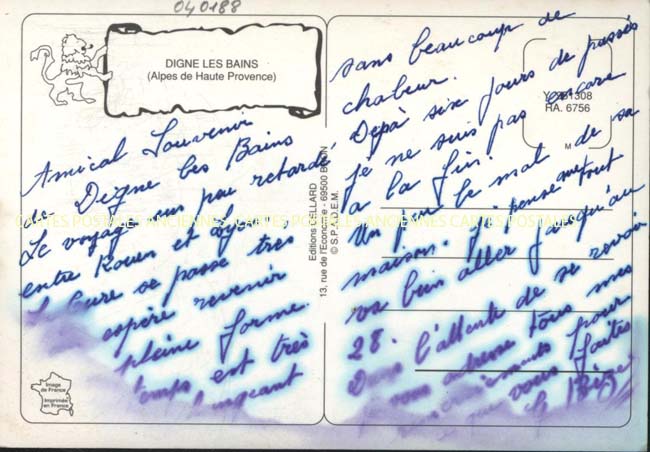 040188
DIGNE LES BAINS
(Alpes de Haute Provence)
Amical Souvenir
Digne les Bains
Le voyage un peu retardé
entre Rouen et Lyon,
se passe très
espère revenir
pleine forme.
temps est très
changeant
Editions CELLARD
13, rue de l'Economie - 69500 BRON
© S.P.A.D.E.M.
sans beaucoup de
chaleur.
Déjà six jours de passés
je ne suis pas encore
à la fin.
Un peu le mal de sa
maison. J'y pense mais tout
va bien aller jusqu'au
28.
Dans l'attente de se revoir
vous adresse tous mes
remerciements pour
que vous faites
Y 381308
RA. 6756
M
CARTES POSTALES ANCIENNES CARTES POSTALES ANCIENNES CARTES POSTALES ANCIENNES
Image
de France
Imprimée
en France